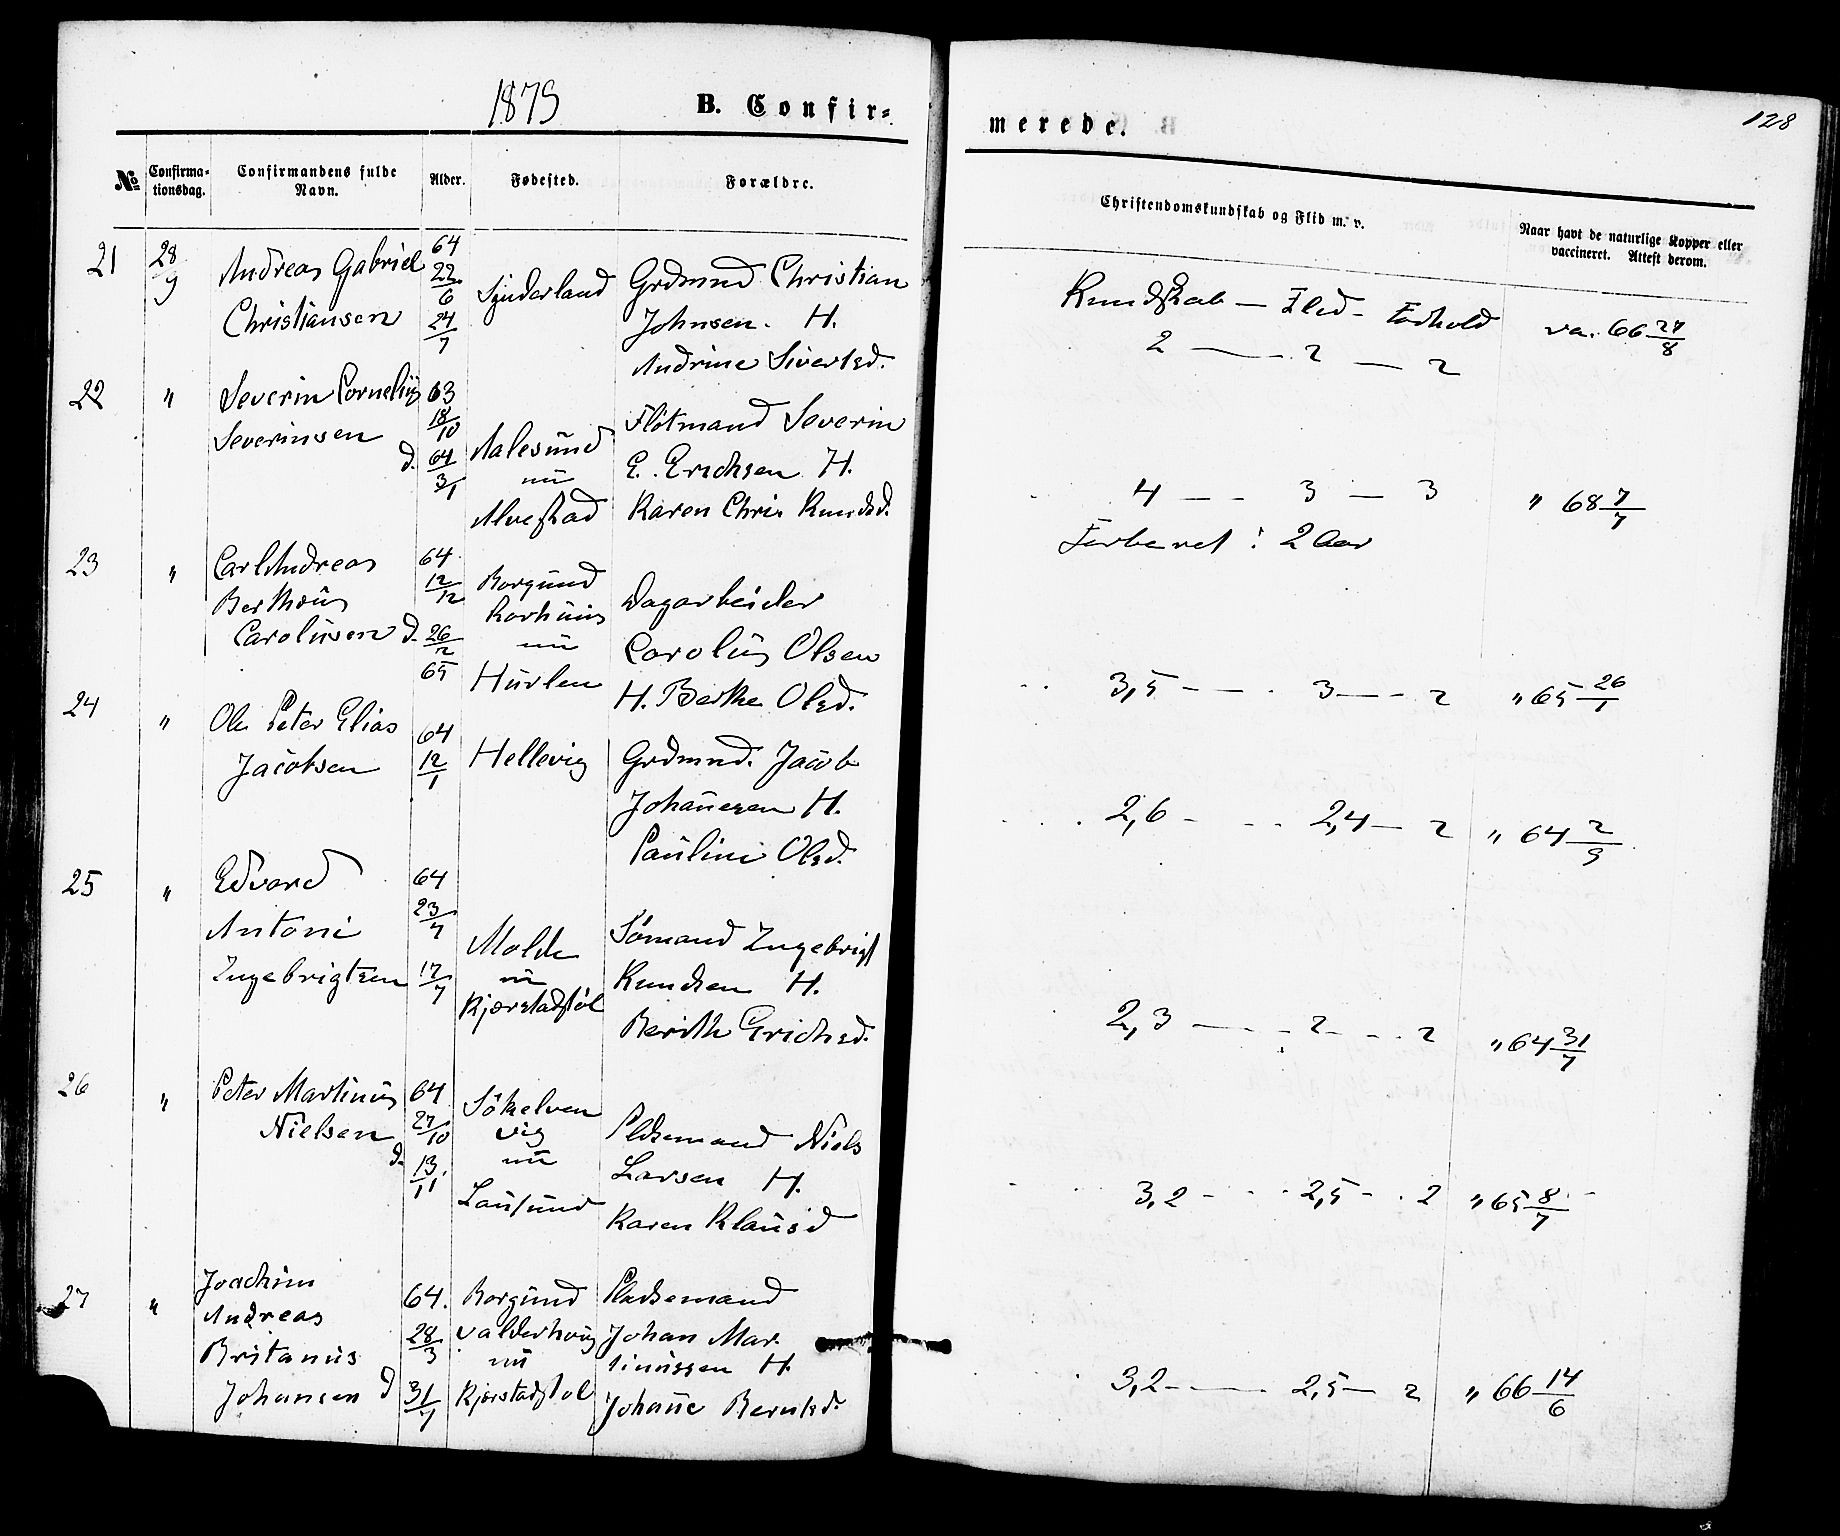 1879
B. Confir-
merede.
128
No
Confirma-
tionsdag.
Confirmandens fulde
Navn.
Alder.
Fødested.
Forældre.
Christendomskundskab og Flid m. v.
Naar havt de naturlige Kopper eller
vaccineret. Attest derom.
21 28/9 Andreas Gabriel
Christiansen
64
22/6
24/7
Synderland
Grdmnd Christian
Johnsen. H.
Andrine Sivertsd.
Kundskab — Flid - Forhold
2 — 2 — 2
va. 66 27/8
22 " Severin Cornelius
Severinsen
63
18/10
d. 64
3/1
Aalesund
nu
Alvestad
Flötmand Severin
E. Erichsen H.
Karen Chris Knudsd.
4 — - 3 — 3
" 68 7/7
Forberet : 2 Aar
23 " Carl Andreas
Bertheus
Carolusen
64
12/12
d. 26/2
65
Borgund
nu
Hurlen
Dagarbeider
Carolus Olsen
H. Berthe Olsd.
3,5 - — - 3 — - 2
" 65 26/1
24 " Ole Peter Elias
Jacobsen
64
12/1
Hellevig
Grdmnd. Jacob
Johannesen H.
Pauline Olsd.
2,6 - - - 2,4 — 2
" 64 2/9
25 " Edvard
Antoni
Ingebrigtsen
64
23/4
17/7
Molde
nu
Kjærstadstöl
Sömand Ingebrigt
Knudsen H.
Berith Grichsd.
2,3 — - - 2 - - - 2
" 64 31/7
26 " Peter Martinus
Nielsen
64
27/10
d. 13/11
Sökelven
vig
nu
Lausund
Pladsemand Niels
Larsen H.
Karen Klausd
3,2 - - - 2,5 - - 2
" 65 8/7
27 " Joachim
Andreas
Britanus
Johansen
64.
28/3
d 31/7
Borgund
Valderhoug
nu
Kjærstadstöl
Pladsemand
Johan Mar-
tinussen H.
Johanne Berntsd.
3,2 - — - 2,5 — 2
" 66 14/6